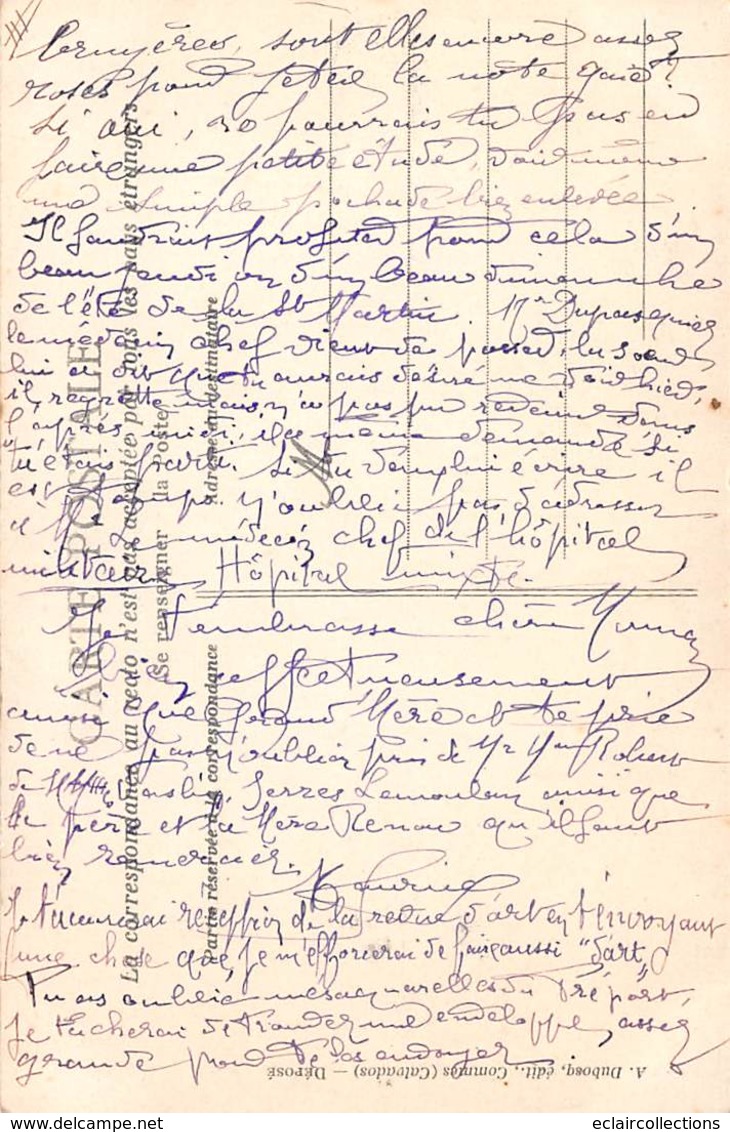 bruyères, sont elles encore assez
roses pour jeter la note gaie?
Si oui, ne pourrais tu pas en
faire une petite étude, voir même
une simple pochade bien enlevée
Il faudrait profiter pour cela d'un
beau jeudi ou d'un beau dimanche
de l'été de la St Martin. Mr Dupasquier
le médecin chef vient de passer, la soeur
lui a dit que tu aurais désiré me voir hier,
il regrette mais n'a pas pu revenir dans
l'après midi, il a même demandé si
tu étais parti. Si tu veux lui écrire il
est temps n'oublie pas d'adresser
à Mr le médecin chef de l'hôpital
militaire Hôpital mixte.
Je t'embrasse chère Maman
bien affectueusement
ainsi que Grand Mère et te prie
de ne pas m'oublier près de Mr Mme Robert
de Serres Lemoulan ainsi que
le père et la Mère Renou qu'il faut
bien remercier.
Maurice
Je t'accuserai réception de la revue d'art en t'envoyant
une chose que je m'efforcerai de faire aussi "d'art"
Tu as oublié mes aquarelles du Tréport,
je tâcherai de trouver une enveloppe assez
grande pour te les envoyer
CARTE POSTALE
La correspondance au recto n'est pas acceptée par tous les pays étrangers
Se renseigner à la Poste
Partie réservée à la correspondance
Adresse du destinataire
M
A. Dubosq, édit., Commes (Calvados) — DÉPOSÉ
eclaircollections